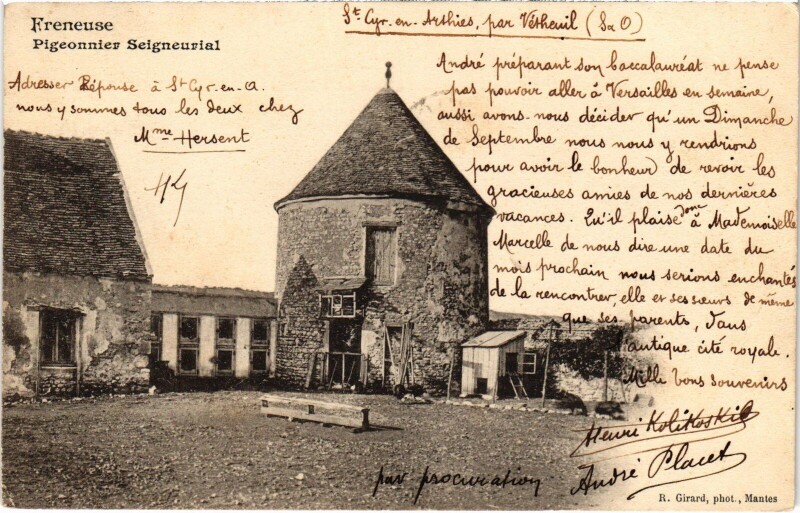 Freneuse
Pigeonnier Seigneurial
St Cyr-en-Arthies, par Vétheuil (S&O)
Adresser Réponse à St Cyr-en-A.
nous y sommes tous les deux chez
Mme Hersent
André préparant son baccalauréat ne pense
pas pouvoir aller à Versailles en semaine,
aussi avons-nous décider qu'un Dimanche
de Septembre nous nous y rendrions
pour avoir le bonheur de revoir les
gracieuses amies de nos dernières
vacances. Qu'il plaise donc à Mademoiselle
Marcelle de nous dire une date du
mois prochain nous serions enchantés
de la rencontrer, elle et ses sœurs de même
que ses parents, dans
l'antique cité royale.
Mille bons souvenirs
Henri Kolikoskil
André Placet
par procuration
R. Girard, phot., Mantes